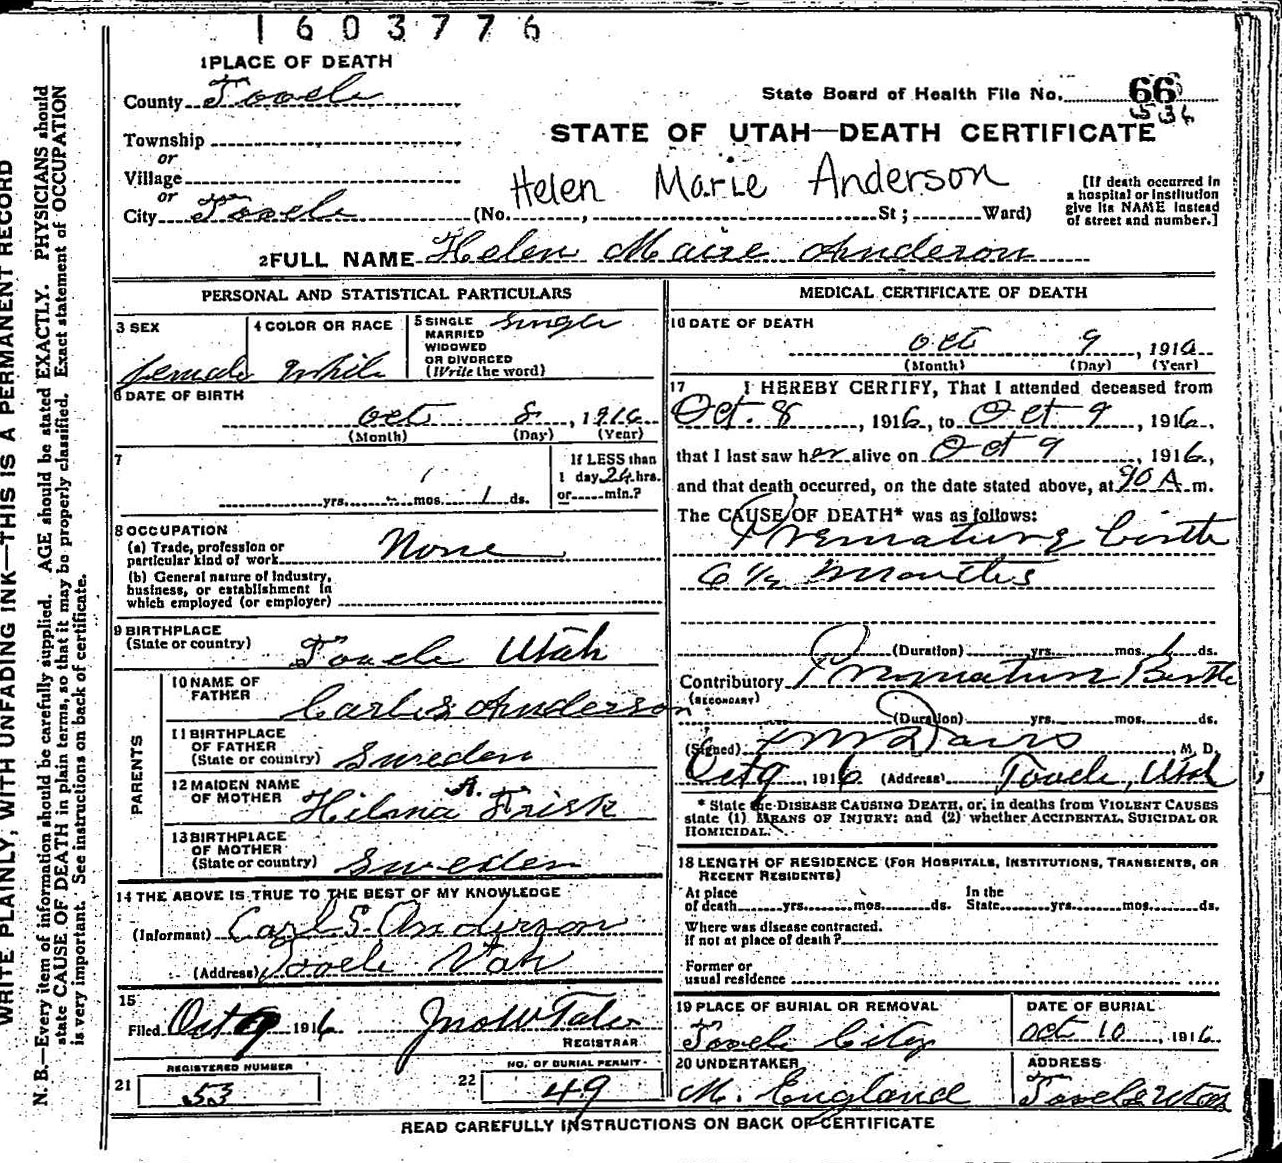 1603776
1 PLACE OF DEATH
County Tooele
State Board of Health File No. 66
536
Township
STATE OF UTAH—DEATH CERTIFICATE
or
Village
or
Helen Marie Anderson
City Tooele (No. , St ; Ward)
[If death occurred in
a hospital or institution
give its NAME instead
of street and number.]
2 FULL NAME Helen Maire Anderson
PERSONAL AND STATISTICAL PARTICULARS
3 SEX
female
4 COLOR OR RACE
White
5 SINGLE
MARRIED
WIDOWED
OR DIVORCED
(Write the word)
Single
6 DATE OF BIRTH
Oct 8, 1916
(Month) (Day) (Year)
7
yrs. mos. 1 ds.
If LESS than
1 day 24 hrs.
or min.?
8 OCCUPATION
(a) Trade, profession or
particular kind of work None
(b) General nature of industry,
business, or establishment in
which employed (or employer)
9 BIRTHPLACE
(State or country)
Tooele Utah
PARENTS
10 NAME OF
FATHER
Carl S Anderson
11 BIRTHPLACE
OF FATHER
(State or country) Sweden
12 MAIDEN NAME
OF MOTHER Hilma A. Frisk
13 BIRTHPLACE
OF MOTHER
(State or country) Sweden
14 THE ABOVE IS TRUE TO THE BEST OF MY KNOWLEDGE
(Informant) Carl S. Anderson
(Address) Tooele Utah
15
Filed Oct 9 1916
REGISTRAR
21
REGISTERED NUMBER
53
22
NO. OF BURIAL PERMIT
49
MEDICAL CERTIFICATE OF DEATH
16 DATE OF DEATH
Oct 9, 1916
(Month) (Day) (Year)
17 I HEREBY CERTIFY, That I attended deceased from
Oct. 8, 1916, to Oct 9, 1916,
that I last saw her alive on Oct 9, 1916,
and that death occurred, on the date stated above, at 90 A.m.
The CAUSE OF DEATH* was as follows:
Premature birth
6 1/2 months
(Duration) yrs. mos. 1 ds.
Contributory Premature Birth
(SECONDARY)
(Duration) yrs. mos. ds.
(Signed) Davis, M. D.
Oct 9, 1916 (Address) Tooele, Utah
* State the DISEASE CAUSING DEATH, or, in deaths from VIOLENT CAUSES
state (1) MEANS OF INJURY; and (2) whether ACCIDENTAL, SUICIDAL OR
HOMICIDAL.
18 LENGTH OF RESIDENCE (FOR HOSPITALS, INSTITUTIONS, TRANSIENTS, OR
RECENT RESIDENTS)
At place
of death yrs. mos. ds.
In the
State yrs. mos. ds.
Where was disease contracted.
If not at place of death?
Former or
usual residence
19 PLACE OF BURIAL OR REMOVAL
Tooele City
DATE OF BURIAL
Oct 10, 1916
20 UNDERTAKER
M. England
ADDRESS
Tooele Utah
READ CAREFULLY INSTRUCTIONS ON BACK OF CERTIFICATE
WRITE PLAINLY, WITH UNFADING INK—THIS IS A PERMANENT RECORD
N. B.—Every item of information should be carefully supplied. AGE should be stated EXACTLY. PHYSICIANS should
state CAUSE OF DEATH in plain terms, so that it may be properly classified. Exact statement of OCCUPATION
is very important. See instructions on back of certificate.